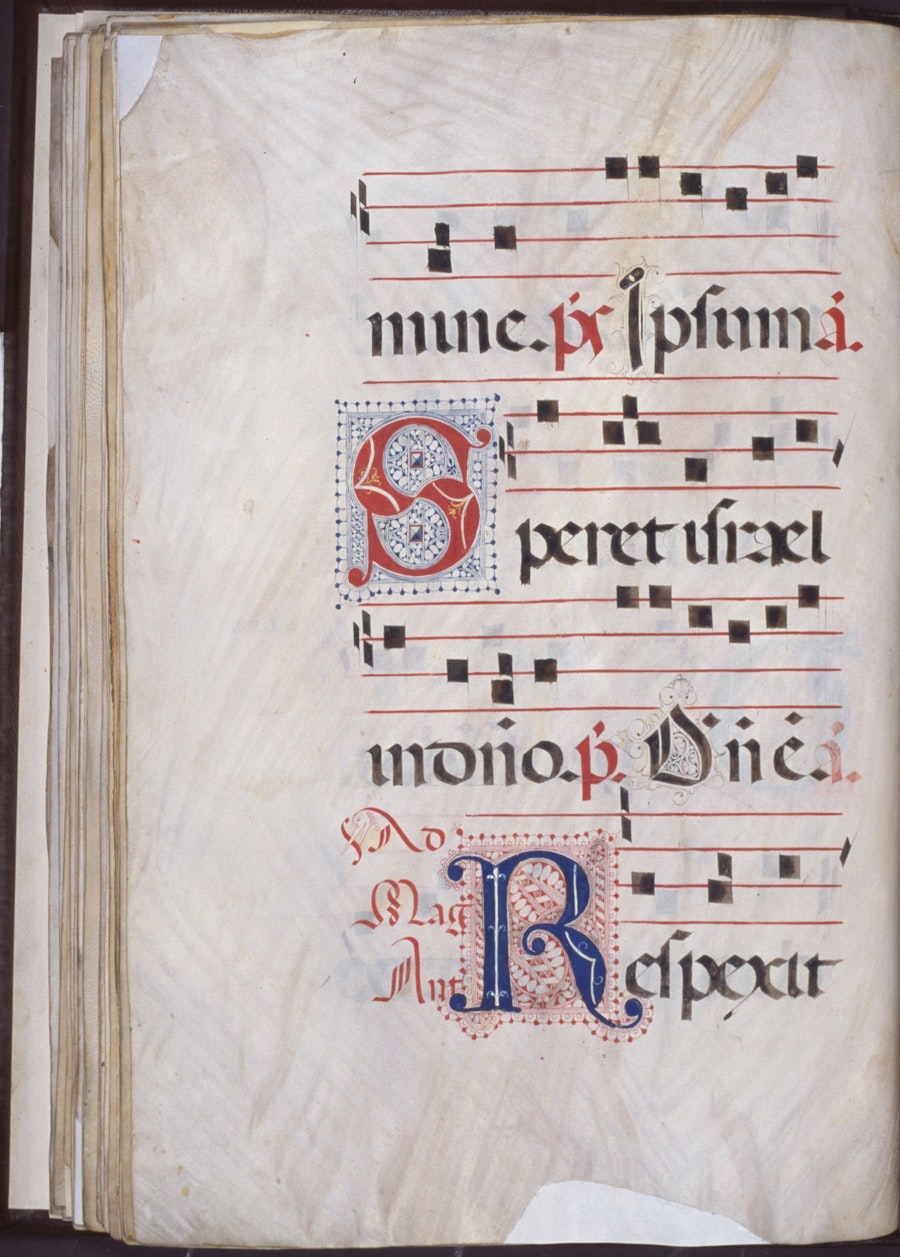 mine. ps Ipsum a.
Speret israel
in dño. p. Dñe. a.
Ad
Mag
Ant
Respexit